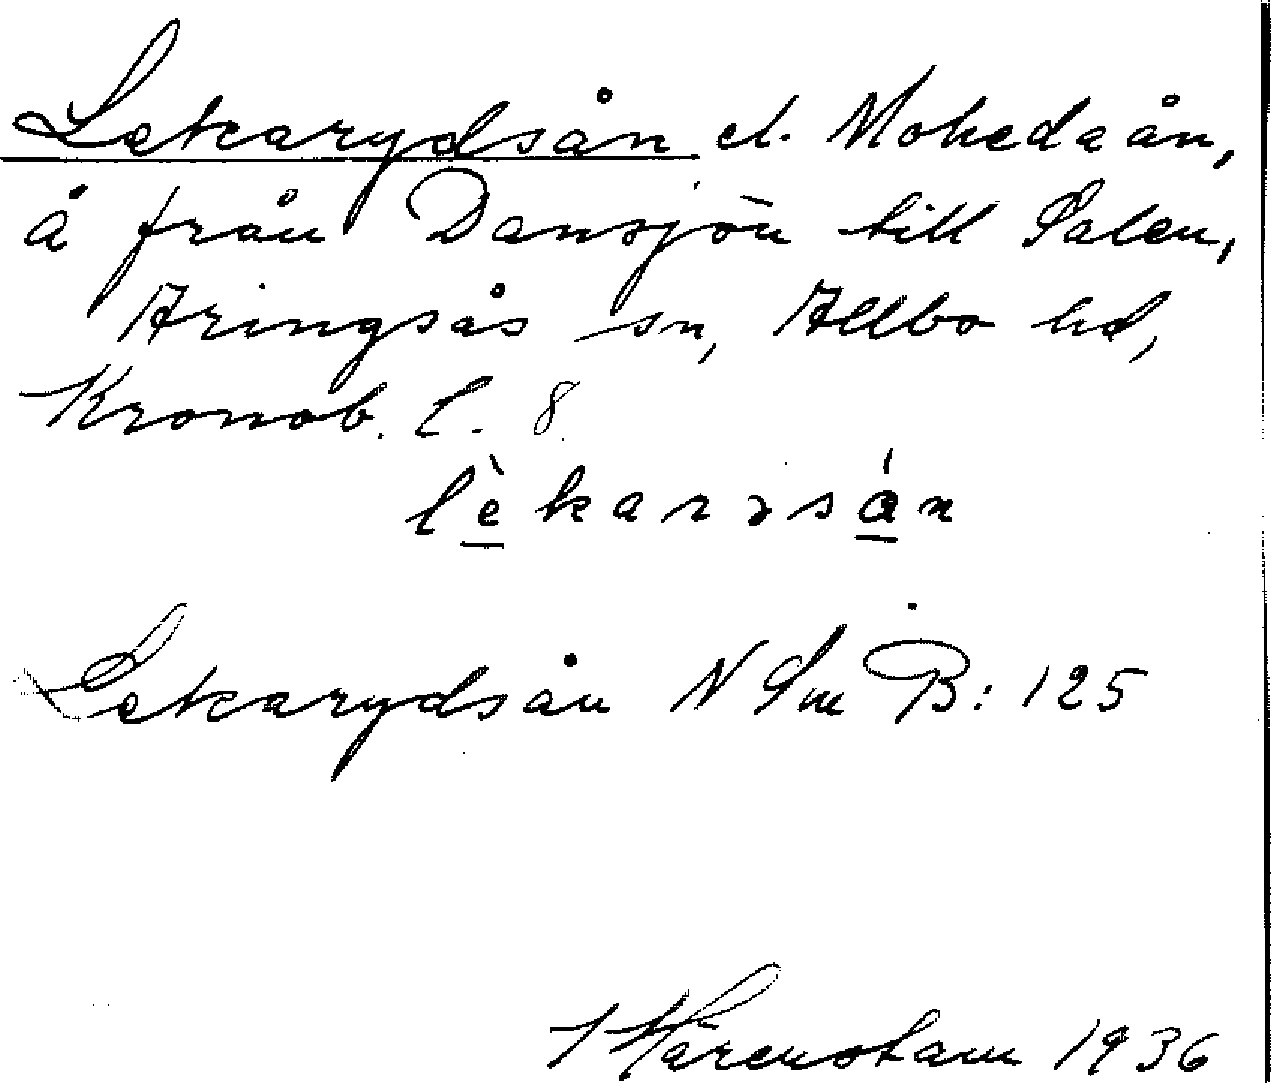 Lekarydsån el. Mohedaån,
å från Dansjön till Salen,
Aringsås sn, Allbo hd,
Kronob. l. 8
lèkarəsán
Lekarydsån N Sm B: 125
Kärenstam 1936